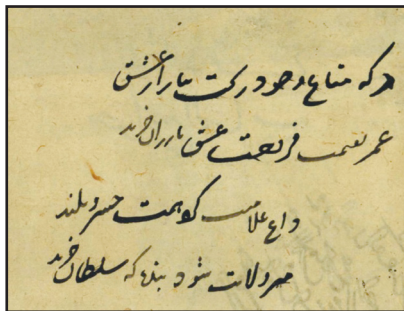 هر که متاع وجود بازار عشق
عمر بقیمت فروخت عشق بارزان خرید
داغ غلامیت کرد همت خسرو بلند
میر ولایت شود بنده که سلطان خرید